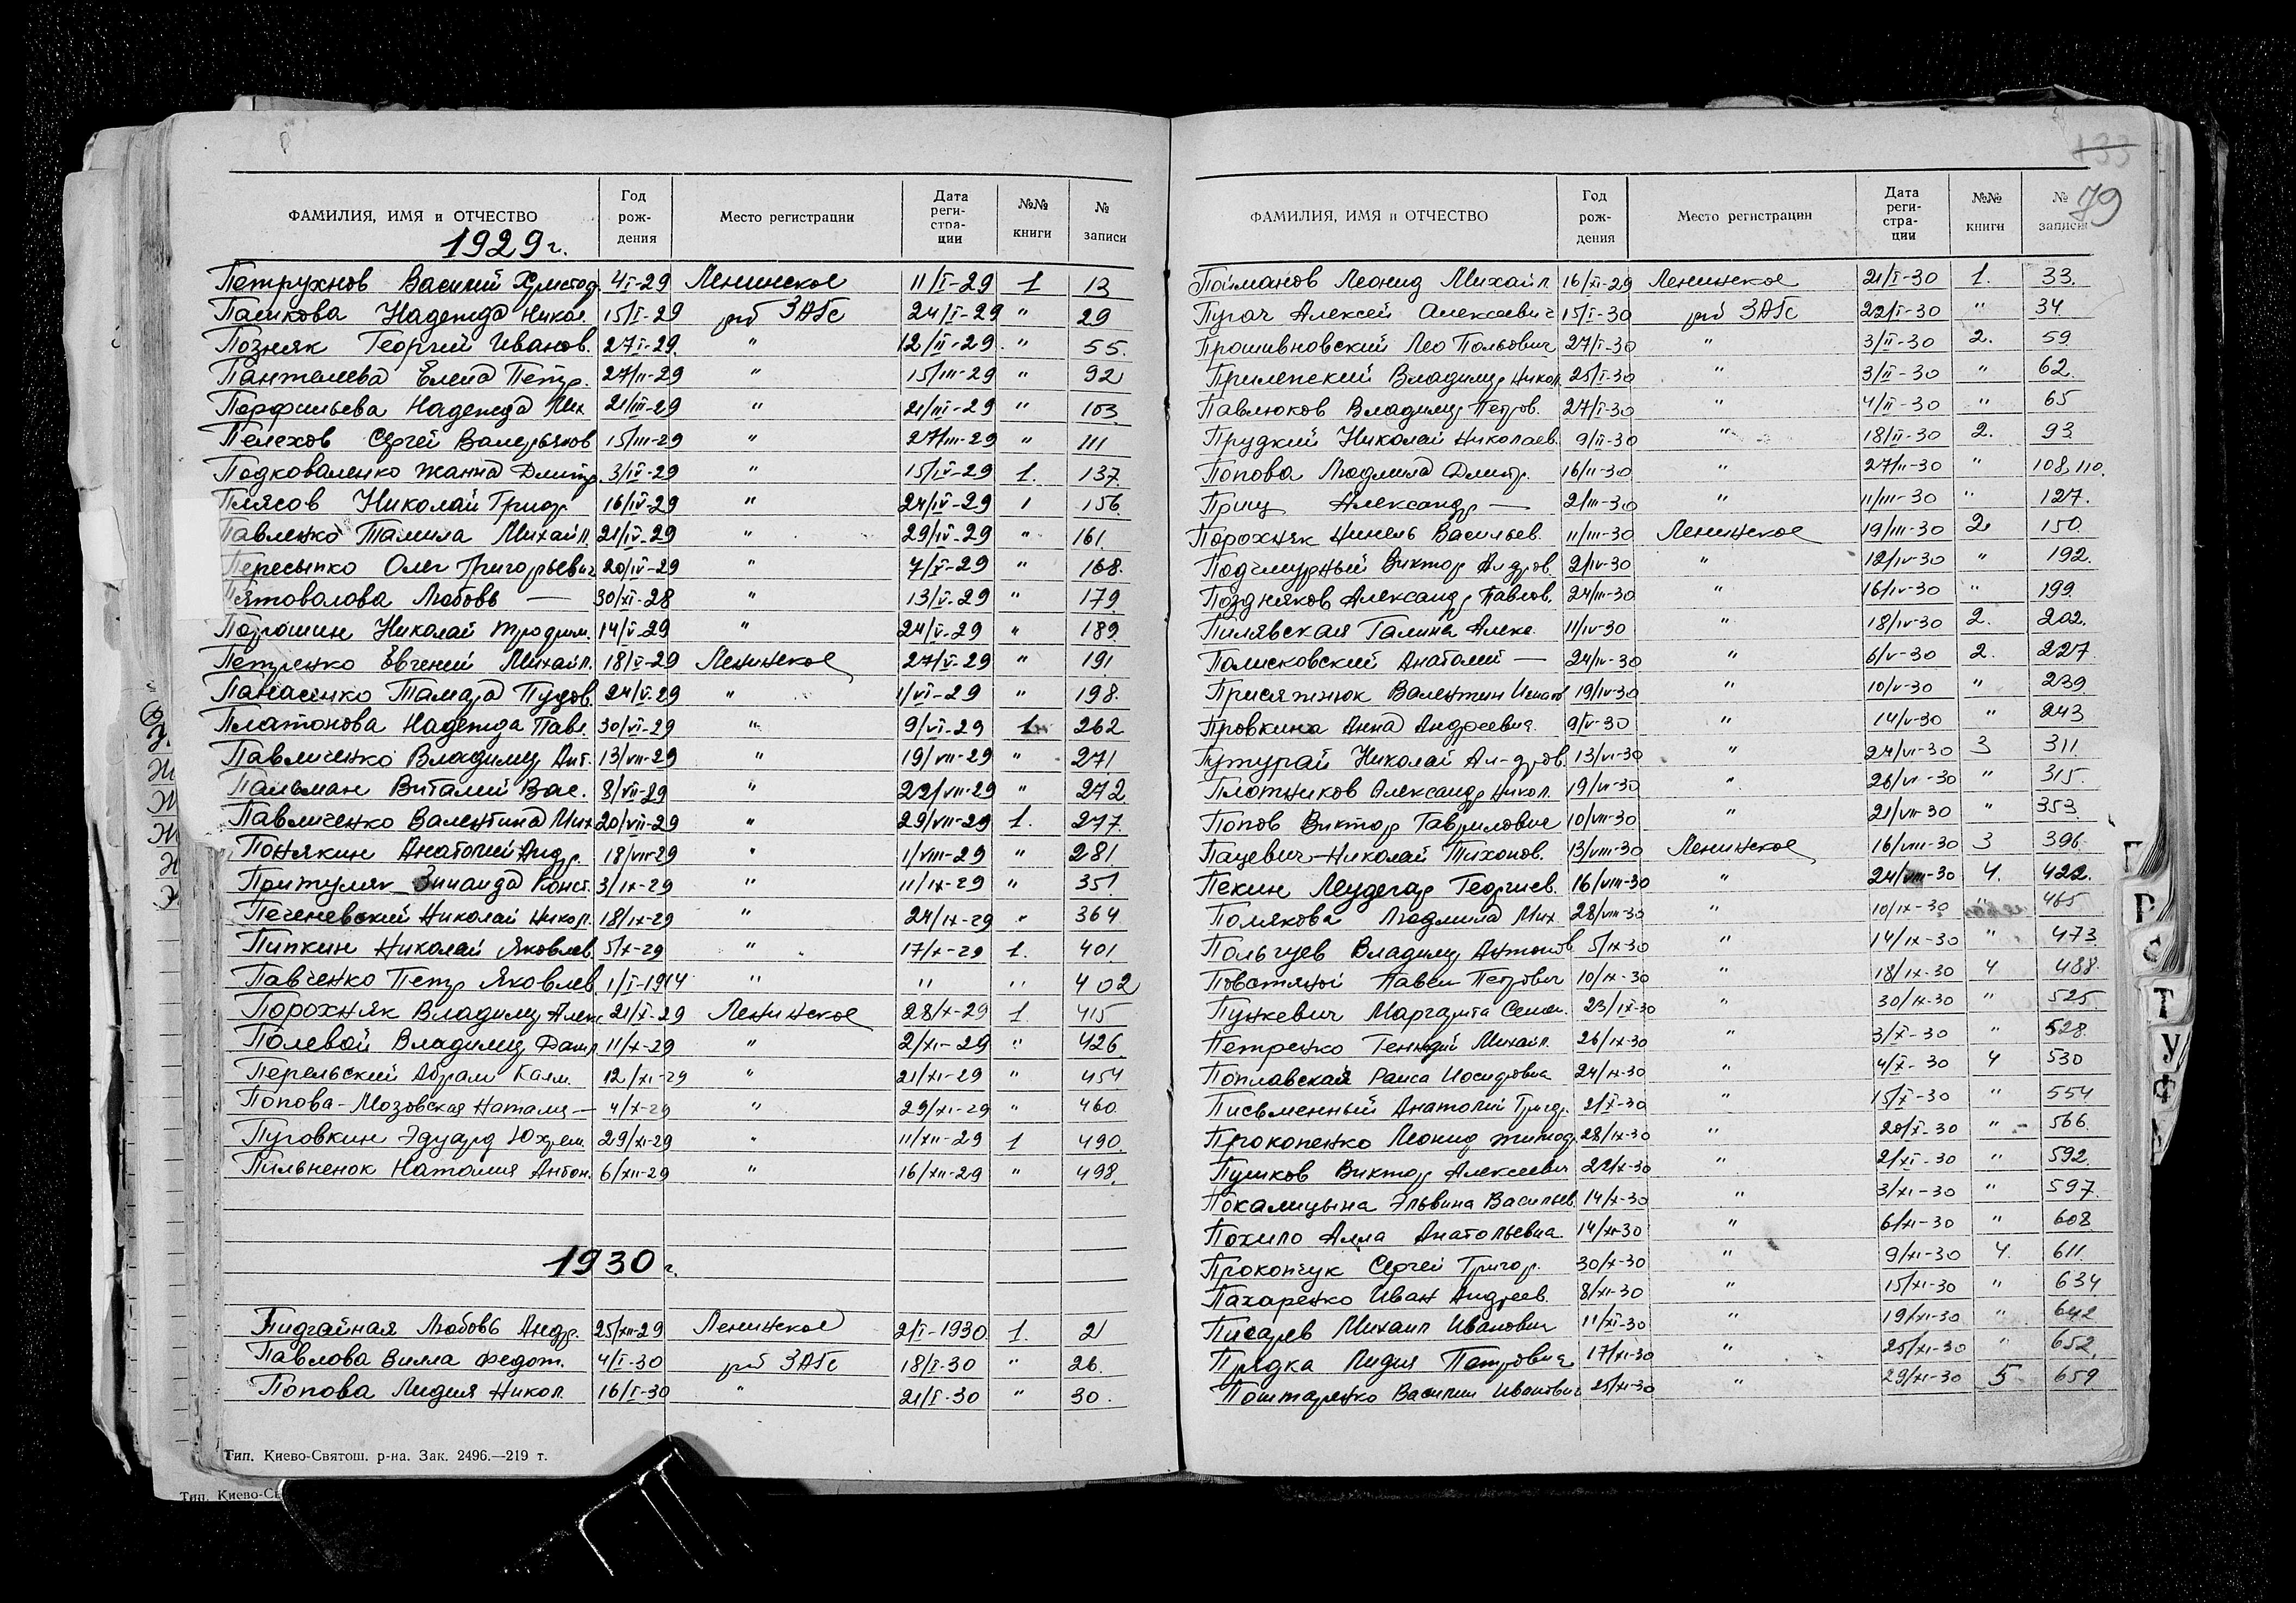 ФАМИЛИЯ, ИМЯ и ОТЧЕСТВО Год рождения Место регистрации Дата регистрации №№ книги № записи
1929 г.
Петрухнов Василий Христод. 4/I-29 Ленинское 11/I-29 1 13
Пашкова Надежда Никол. 15/I-29 рб ЗАГС 24/I-29 " 29
Позняк Георгий Иванов. 27/I-29 " 12/II-29 " 55.
Пантелева Елена Петр. 27/II-29 " 15/III-29 " 92
Парфильева Надежда Мих 21/III-29 " 21/III-29 " 103
Пелехов Сергей Валерьянов 15/III-29 " 27/III-29 " 111
Подковаленко Жанна Дмитр. 3/IV-29 " 15/IV-29 1. 137.
Плясов Николай Григор. 16/IV-29 " 24/IV-29 1 156.
Павленко Тамила Михайл. 21/IV-29 " 29/IV-29 " 161.
Пересыпко Олег Григорьевич 20/IV-29 " 7/V-29 " 168.
Любовь — 30/XI-28 " 13/V-29 " 179
Николай 14/V-29 " 24/V-29 " 189.
Петренко Евгений Михайл. 18/V-29 Ленинское 27/V-29 " 191
Панасенко Тамара 24/V-29 " 1/VI-29 " 198.
Платонова Надежда Павл. 30/VI-29 " 9/VI-29 1 262
Павличенко Владимир Ант. 13/VII-29 " 19/VII-29 " 271
Пальман Виталий Вас. 8/VII-29 " 22/VII-29 " 272.
Павличенко Валентина Мих 20/VII-29 " 29/VII-29 1. 277.
Понякин Анатолий Андр. 18/VII-29 " 1/VIII-29 " 281
Притуляк Зинаида Конст. 3/IX-29 " 11/IX-29 " 351
Печеневский Николай Никол. 18/IX-29 " 24/IX-29 " 364
Пипкин Николай Яковлев. 5/X-29 " 17/X-29 1. 401
Павченко Петр Яковлев. 1/I-1914 " " " 402
Порохняк Владимир Алекс 21/X-29 Ленинское 28/X-29 1 415
Полевой Владимир 11/X-29 " 2/XI-29 " 426.
Перельский Абрам Калм. 12/XI-29 " 21/XI-29 " 454
Попова-Мозовская Наталия — 4/X-29 " 29/XI-29 " 460.
Пуговкин Эдуард 29/XI-29 " 11/XII-29 1 490.
Пильненок Наталия Антон. 6/XII-29 " 16/XII-29 " 498.
1930 г.
Пидчайная Любовь Андр. 25/XII-29 Ленинское 2/I-1930 1. 2
Павлова Вилла Федот. 4/I-30 рб ЗАГС 18/I-30 " 26.
Попова Лидия Никол. 16/I-30 " 21/I-30 " 30.
Тип. Киево-Святош. р-на. Зак. 2496.—219 т.
Тип. Киево-Св
133
79
ФАМИЛИЯ, ИМЯ и ОТЧЕСТВО Год рождения Место регистрации Дата регистрации №№ книги № записи
Пойманов Леонид Михайл 16/XI-29 Ленинское 21/I-30 1. 33.
Пугач Алексей Алексеевич 15/I-30 рб ЗАГС 22/I-30 " 34
Прошивновский Лео Польович 27/I-30 " 3/II-30 2. 59
Прилепский Владимир Никол. 25/I-30 " 3/II-30 " 62.
Павлюков Владимир Петров. 27/I-30 " 4/II-30 " 65
Прудкий Николай Николаев. 9/II-30 " 18/II-30 2. 93
Попова Людмила Дмитр. 16/II-30 " 27/II-30 " 108, 110.
Приц Александр — 2/III-30 " 11/III-30 " 127.
Порохняк Нинель Васильев. 11/III-30 Ленинское 19/III-30 2 150.
Подчмурный Виктор Ал-дров. 2/IV-30 " 12/IV-30 " 192.
Поздняков Александр Павлов. 24/III-30 " 16/IV-30 " 199.
Пилявская Галина Алекс. 11/IV-30 " 18/IV-30 2. 202.
Полисковский Анатолий — 24/IV-30 " 6/V-30 2. 227
Присяжнюк Валентин Игнатов 19/IV-30 " 10/V-30 " 239
Провкина Анна Андреевна 9/V-30 " 14/V-30 " 243
Путурай Николай Ал-дров. 13/VI-30 " 24/VI-30 3 311
Плотников Александр Никол. 19/VI-30 " 26/VI-30 " 315.
Попов Виктор Гаврилович 10/VII-30 " 21/VII-30 " 353
Пацевич Николай Тихонов. 13/VIII-30 Ленинское 16/VIII-30 3 396.
Пекин Леудегар Георгиев. 16/VIII-30 " 24/VIII-30 4. 422.
Полякова Людмила Мих. 28/VIII-30 " 10/IX-30 " 465
Польчуев Владимир Антонов 5/IX-30 " 14/IX-30 " 473
Повстяной Павел Петрович 10/IX-30 " 18/IX-30 4 488.
Пункевич Маргарита Семен. 23/IX-30 " 30/IX-30 " 525.
Петренко Геннадий Михайл. 26/IX-30 " 3/X-30 " 528.
Поплавская Раиса Иосифовна 24/IX-30 " 4/X-30 4 530
Письменный Анатолий Григор. 2/X-30 " 15/X-30 " 554
Прокопенко Леонид 28/IX-30 " 20/X-30 " 566.
Пушков Виктор Алексеевич 22/X-30 " 2/XI-30 " 592.
Покалицына Эльвина Васильев. 14/X-30 " 3/XI-30 " 597.
Похило Алла Анатольевна 14/XI-30 " 6/XI-30 " 608
Прокопчук Сергей Григор. 30/X-30 " 9/XI-30 4. 611.
Пахаренко Иван Андреев. 8/XI-30 " 15/XI-30 " 634
Писарев Михаил Иванович 11/XI-30 " 19/XI-30 " 642
Прядка Лидия Петровна 17/XI-30 " 25/XI-30 " 652.
Поштаренко Василий Иванович 25/XI-30 " 29/XI-30 5 659
Р
С
Т
У
Ф